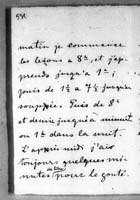 matin je commence
les leçons à 8h, et j'ap-
prends jusqu'à 1h;
puis de 1½ à 7½ jusqu'au
souper. Puis de 8h
et demie jusqu'à minuit
ou 1h dans la nuit.
L'après midi j'ai
toujours quelques mi-
nutes pour le goûté.